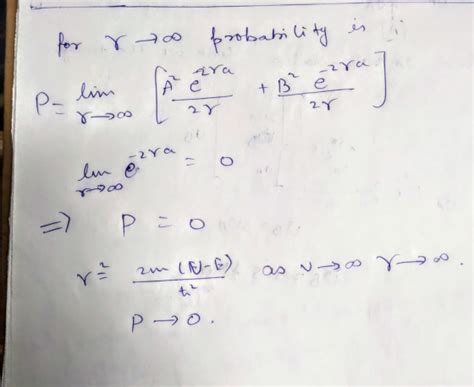 for γ → ∞ probability is
P = lim γ→∞ [ A² e^(-2γa) / 2γ + B² e^(-2γa) / 2γ ]
lim γ→∞ e^(-2γa) = 0
⇒ P = 0
γ² = 2m (V-E) / ħ² as V→∞ γ→∞.
P → 0.